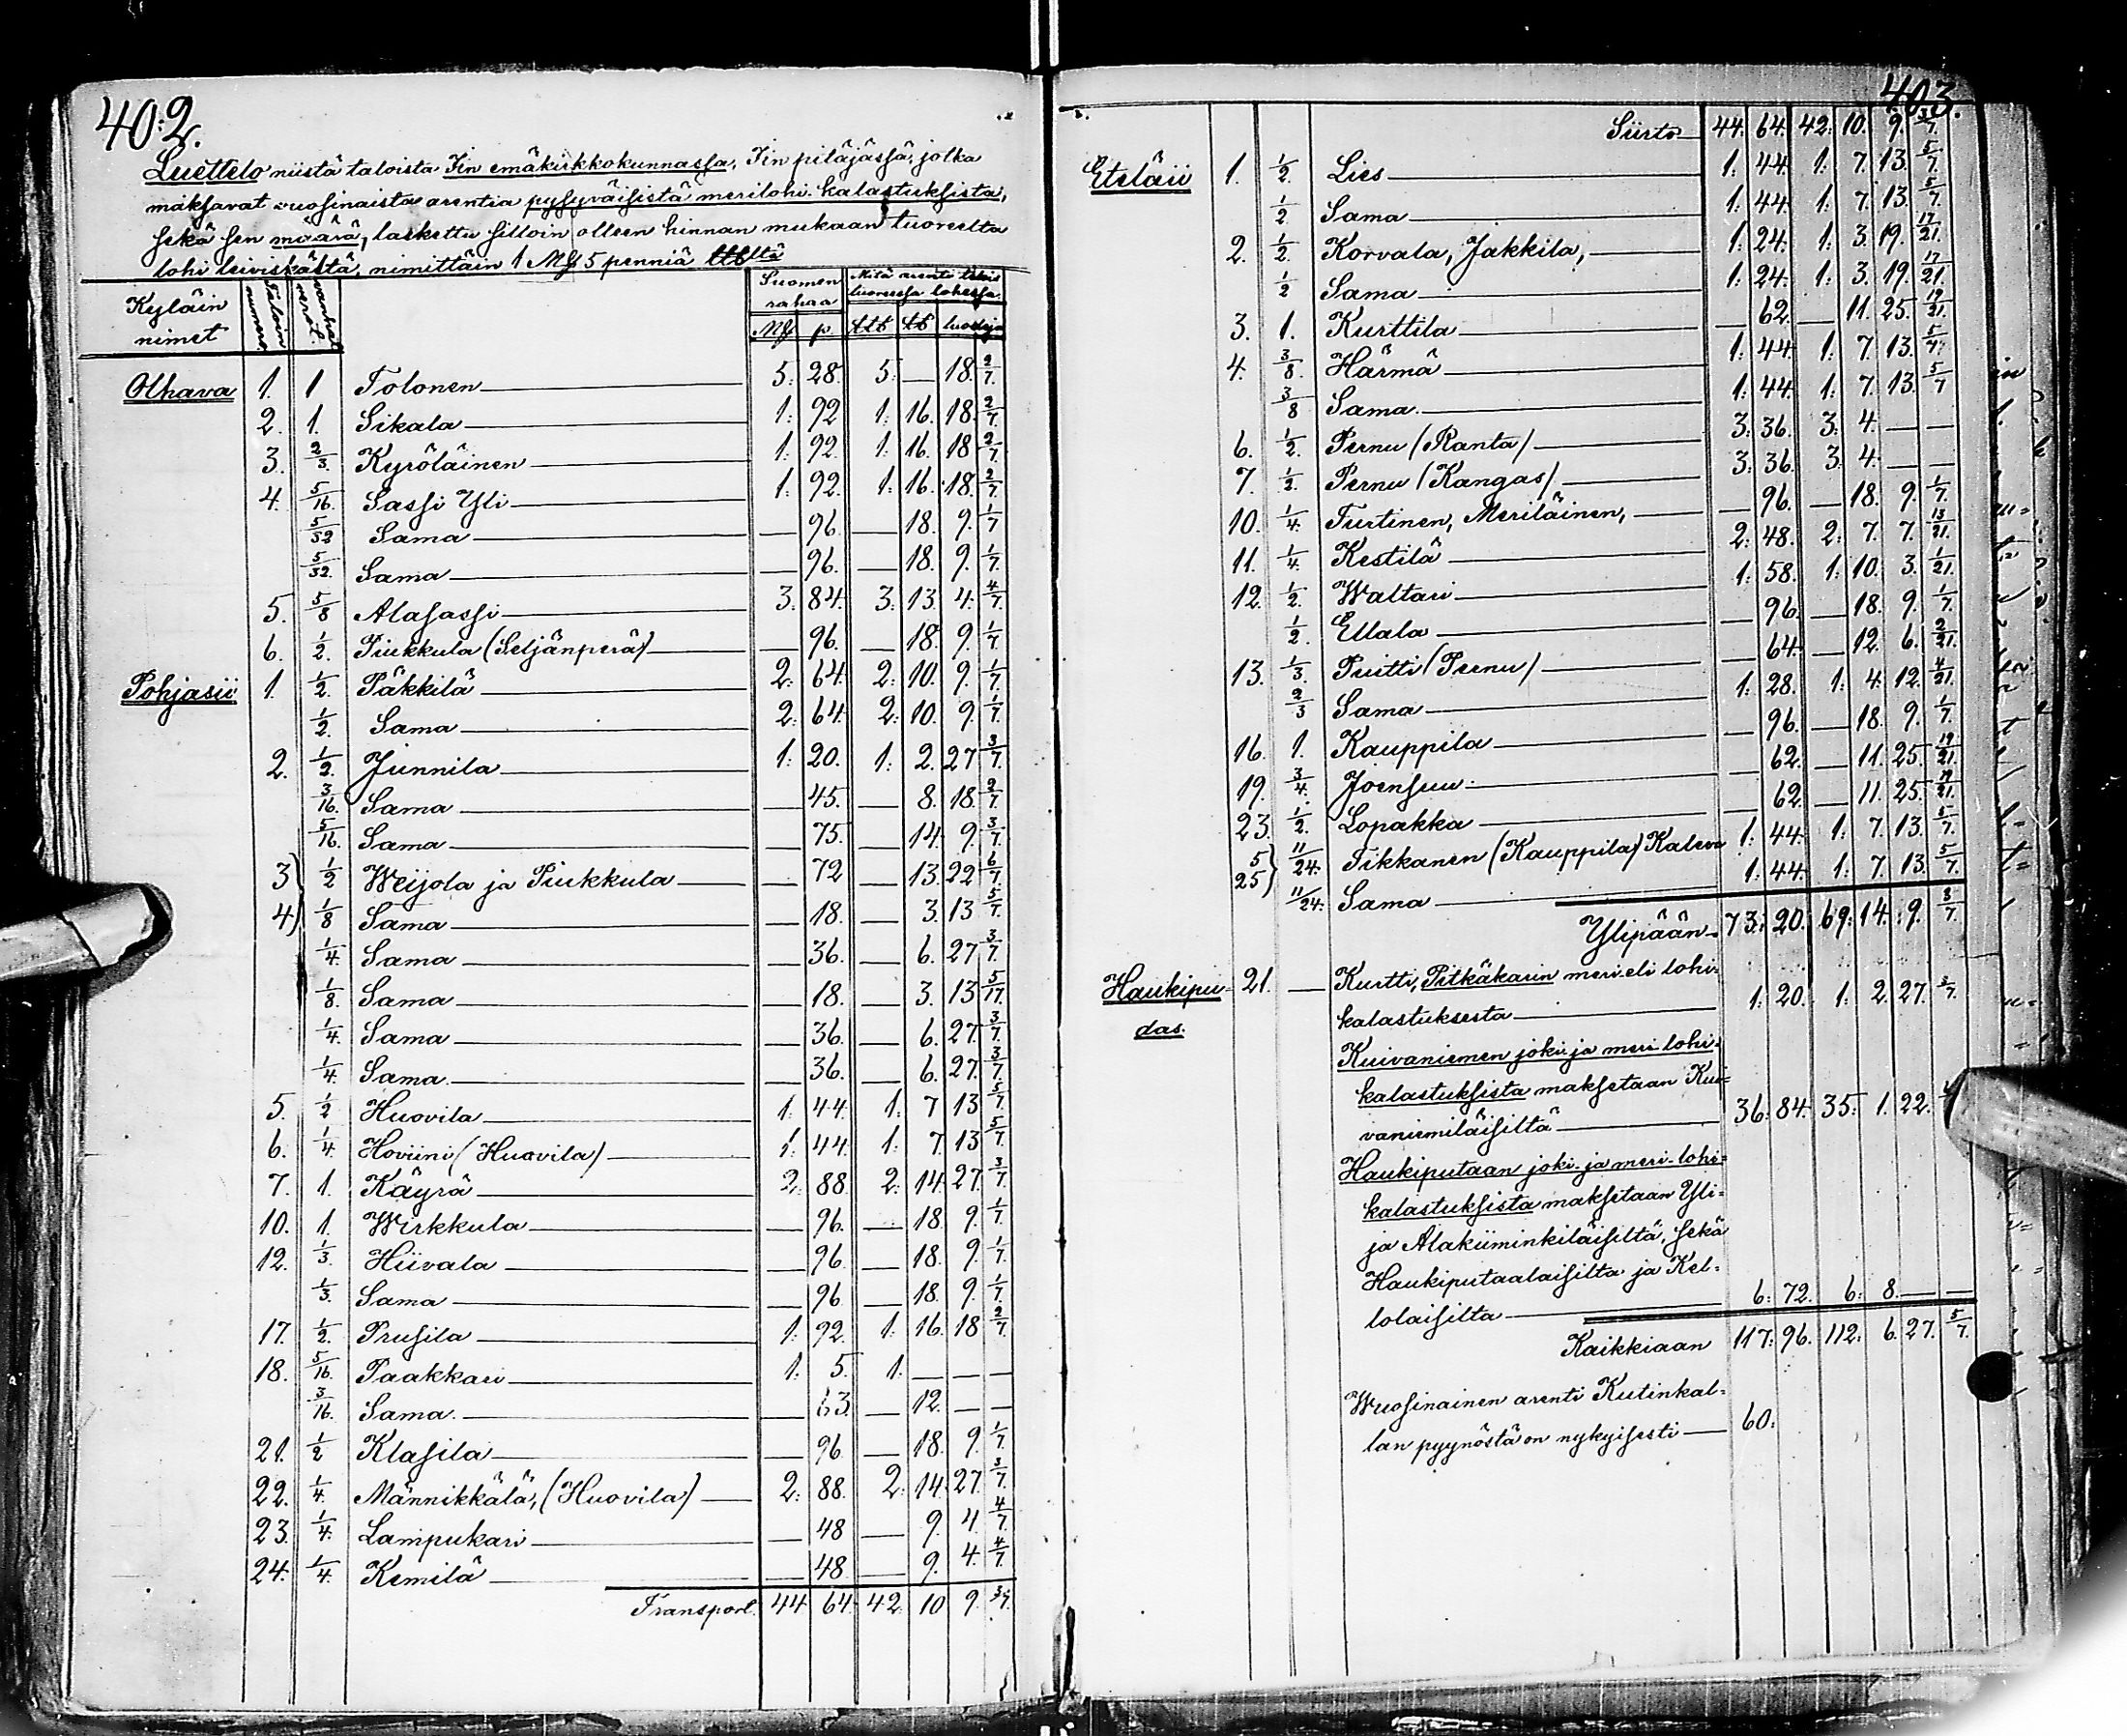 402.
Luettelo niistä taloista Iin emäkirkkokunnassa, Iin pitäjässä, jotka
maksavat vuosinaista arentia pysyväisistä merilohi kalastuksista,
sekä sen määrä, laskettu silloin olleen hinnan mukaan tuoreelta
lohi leiviskältä, nimittäin 1 Mk 5 penniä ltbltä
Kyläin nimet | Taloin numero | wanhat verot. | Suomen rahaa | Mitä arenti tekis tuoreessa lohessa.
Mk | p | LLb | Lb | luodeja
Olhava 1. 1 Tolonen — 5: 28. 5: — 18. 2/7.
2. 1. Sikala — 1: 92 1: 16. 18. 2/7.
3. 2/3. Kyröläinen — 1: 92. 1: 16. 18 2/7.
4. 5/16. Sassi Yli — 1: 92. 1: 16. 18. 2/7.
5/32 Sama — 96. — 18. 9. 1/7
5/32. Sama — 96. — 18. 9. 1/7.
5. 5/8 Alasassi — 3: 84. 3: 13. 4. 4/7
6. 1/2. Piukkula (Seljänperä) — 96. — 18. 9. 1/7
Pohjasii 1. 1/2. Päkkilä — 2: 64. 2: 10. 9. 1/7.
1/2. Sama — 2: 64. 2: 10. 9. 1/7.
2. 1/2. Junnila — 1: 20. 1: 2. 27 3/7.
3/16. Sama — 45. — 8. 18. 2/7
5/16. Sama — 75. — 14. 9. 3/7.
3) 1/2 Weijola ja Piukkula — 72 — 13. 22 6/7
4) 1/8 Sama — 18. — 3. 13 5/7.
1/4. Sama — 36. — 6. 27 3/7.
1/8. Sama — 18. — 3. 13 5/17.
1/4. Sama — 36. — 6. 27. 3/7.
1/4. Sama — 36. — 6. 27. 3/7
5. 1/2 Huovila — 1: 44. 1: 7 13 5/7.
6. 1/4. Hoviini (Huovila) — 1: 44. 1: 7. 13 5/7.
7. 1. Käyrä — 2: 88. 2: 14. 27. 3/7
10. 1. Wirkkula — 96. — 18. 9. 1/7.
12. 1/3. Hiivala — 96. — 18. 9. 1/7
1/3. Sama — 96. — 18. 9. 1/7.
17. 1/2. Prusila — 1: 92. 1: 16. 18 2/7.
18. 5/16. Paakkari — 1: 5. 1: — — —
3/16. Sama — 63. — 12. — —
21. 1/2 Klasila — 96 — 18. 9. 1/7.
22. 1/4. Männikkälä, (Huovila) — 2: 88. 2: 14. 27. 3/7.
23. 1/4. Lampukari — 48 — 9. 4. 4/7
24. 1/4. Kemilä — 48 — 9. 4. 4/7.
Transport. 44 64. 42. 10 9. 3/7.
403.
Siirto — 44. 64. 42: 10. 9. 3/7.
Eteläii 1. 1/2. Lies — 1: 44. 1: 7. 13. 5/7.
1/2 Sama — 1: 44. 1: 7. 13. 5/7.
2. 1/2. Korvala, Jakkila, — 1: 24. 1: 3. 19. 17/21.
1/2 Sama — 1: 24. 1: 3. 19. 17/21.
3. 1. Kurttila — 62. — 11. 25. 19/21.
4. 3/8. Härmä — 1: 44. 1: 7. 13. 5/7.
3/8 Sama — 1: 44. 1: 7. 13. 5/7
6. 1/2. Pernu (Ranta) — 3: 36. 3: 4. — —
7. 1/2. Pernu (Kangas) — 3: 36. 3: 4. — —
10. 1/4. Turtinen, Meriläinen, — 96. — 18. 9. 1/7.
11. 1/4. Kestilä — 2: 48. 2: 7. 7. 13/21.
12. 1/2. Waltari — 1: 58. 1: 10. 3. 1/21.
1/2. Ellala — 96. — 18. 9. 1/7.
13. 1/3. Puitti (Pernu) — 64. — 12. 6. 2/21.
2/3 Sama — 1: 28. 1: 4. 12. 4/21.
16. 1. Kauppila — 96. — 18. 9. 1/7.
19. 3/4. Joensuu — 62. — 11. 25. 19/21.
23. 1/2. Lopakka — 62. — 11. 25. 19/21.
5 25) 11/24. Tikkanen (Kauppila) Kaleva 1: 44. 1: 7. 13. 5/7.
11/24. Sama — 1: 44. 1: 7. 13. 5/7.
Ylipään — 73: 20. 69: 14. 9. 3/7
Haukipu- 21. — Kurtti, Pitkäkarin meri eli lohi-
das. kalastuksesta — 1: 20. 1: 2. 27. 3/7.
Kuivaniemen joki- ja meri-lohi-
kalastuksista maksetaan Kui-
vaniemiläisiltä — 36: 84. 35: 1. 22.
Haukiputaan joki- ja meri-lohi-
kalastuksista maksetaan Yli-
ja Alakiiminkiläisiltä, sekä
Haukiputaalaisilta ja Kel-
lolaisilta — 6: 72. 6: 8. — —
Kaikkiaan 117: 96. 112: 6. 27. 5/7.
Wuosinainen arenti Kutinkal-
lan pyynöstä on nykyisesti — 60: